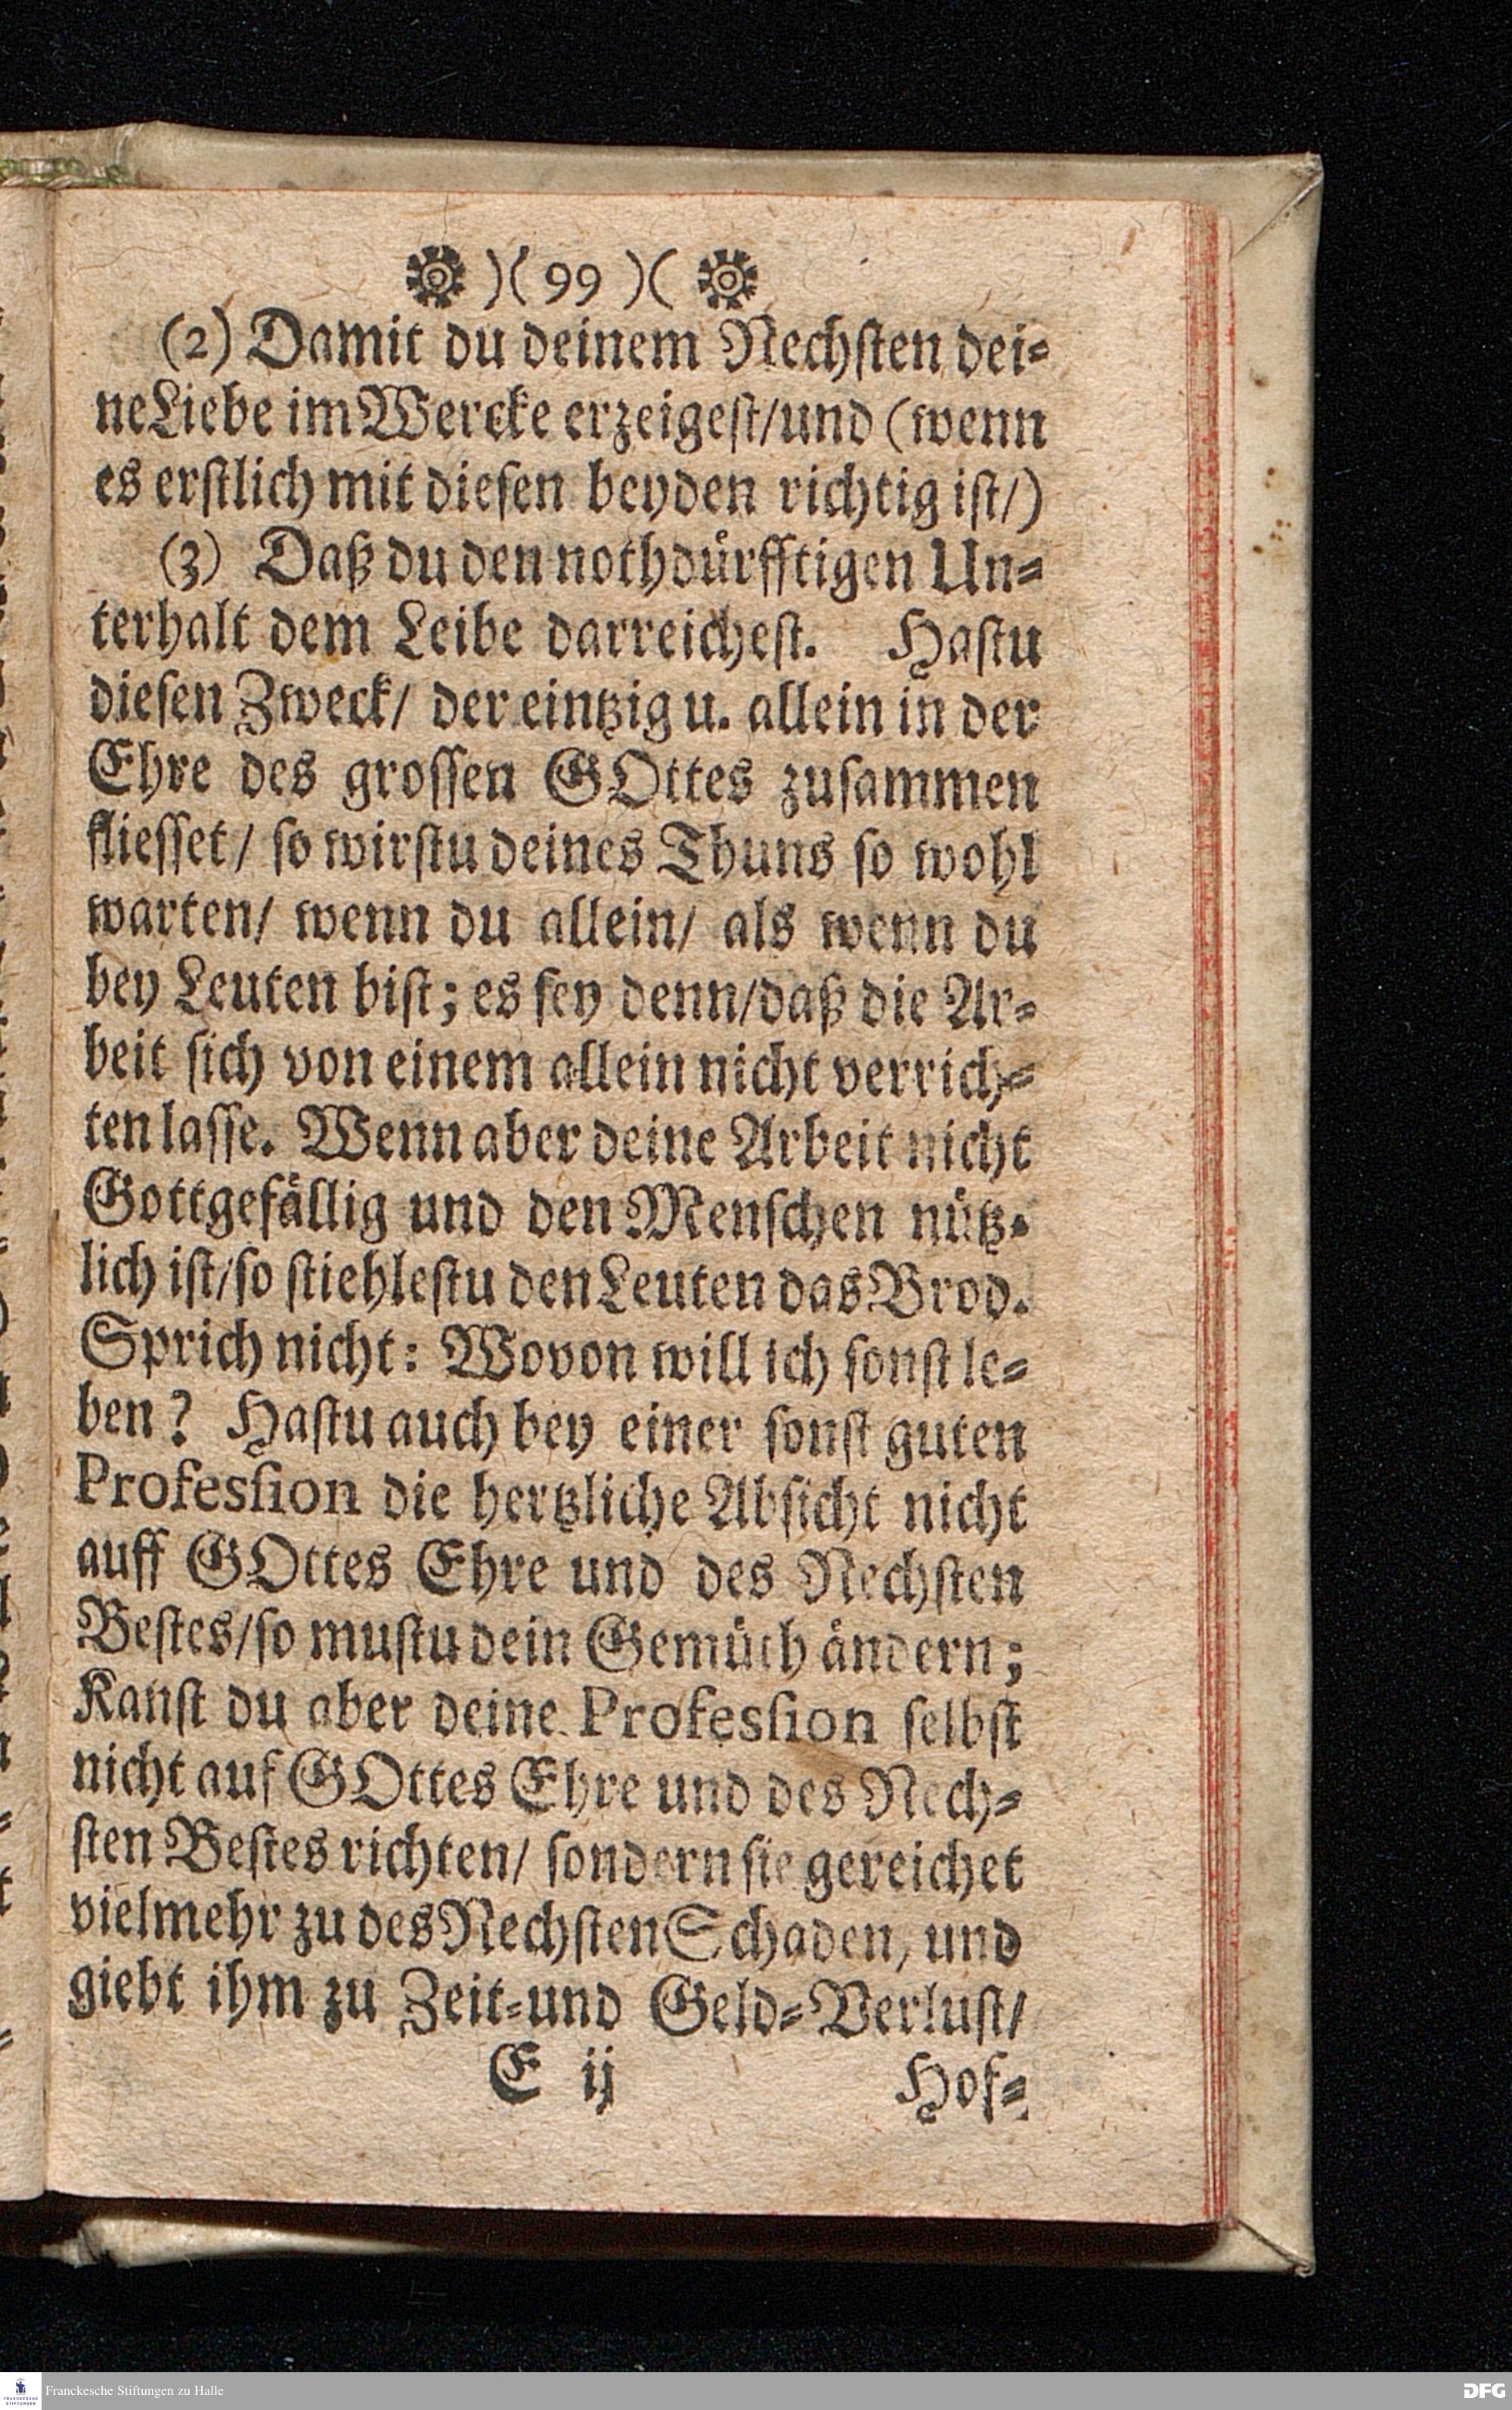 )( 99 )(
(2) Damit du deinem Nechsten dei-
ne Liebe im Wercke erzeigest/und (wenn
es erstlich mit diesen beyden richtig ist/)
(3) Daß du den nothdürfftigen Un-
terhalt dem Leibe darreichest. Hastu
diesen Zweck/ der eintzig u. allein in der
Ehre des grossen GOttes zusammen
fliesset/ so wirstu deines Thuns so wohl
warten/ wenn du allein/ als wenn du
bey Leuten bist; es sey denn/daß die Ar-
beit sich von einem allein nicht verrich-
ten lasse. Wenn aber deine Arbeit nicht
Gottgefällig und den Menschen nütz-
lich ist/so stiehlestu den Leuten das Brod.
Sprich nicht: Wovon will ich sonst le-
ben? Hastu auch bey einer sonst guten
Profession die hertzliche Absicht nicht
auff GOttes Ehre und des Nechsten
Bestes/so mustu dein Gemüth ändern;
Kanst du aber deine Profession selbst
nicht auf GOttes Ehre und des Nech-
sten Bestes richten/ sondern sie gereichet
vielmehr zu des Nechsten Schaden, und
giebt ihm zu Zeit-und Geld-Verlust/
E ij Hof-
Franckesche Stiftungen zu Halle
DFG